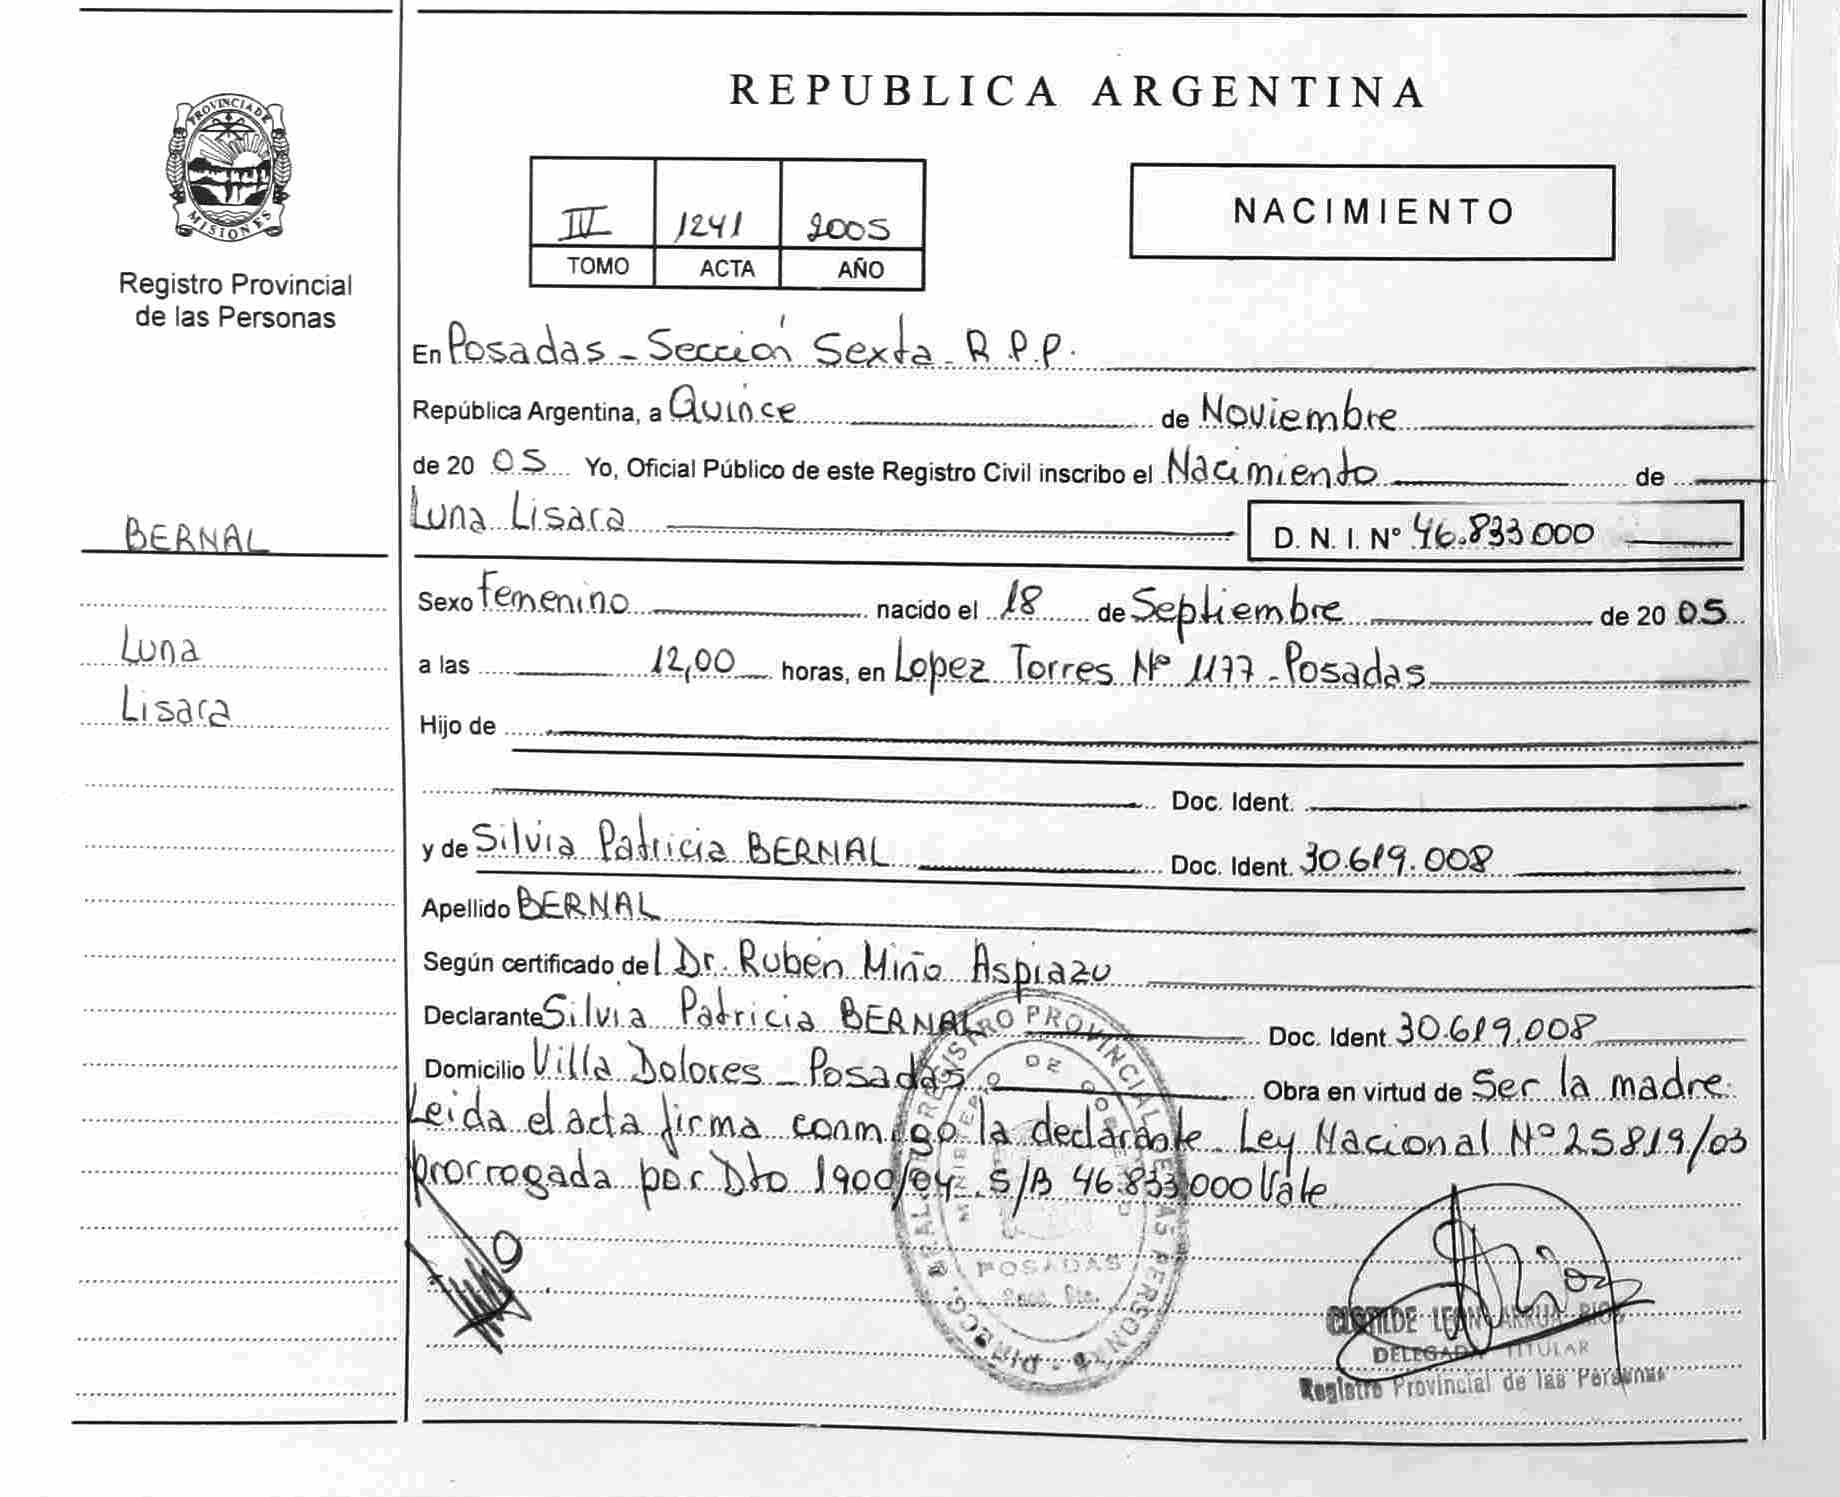 PROVINCIA DE
MISIONES
Registro Provincial
de las Personas
BERNAL
Luna
Lisara
REPUBLICA ARGENTINA
IV 1241 2005
TOMO ACTA AÑO
NACIMIENTO
En Posadas - Sección Sexta - R.P.P.
República Argentina, a Quince de Noviembre
de 20 05 Yo, Oficial Público de este Registro Civil inscribo el Nacimiento de
Luna Lisara D. N. I. N° 46.833.000
Sexo femenino nacido el 18 de Septiembre de 20 05
a las 12,00 horas, en Lopez Torres Nº 1177 - Posadas
Hijo de
Doc. Ident.
y de Silvia Patricia BERNAL Doc. Ident. 30.619.008
Apellido BERNAL
Según certificado del Dr. Rubén Miño Aspiazu
Declarante Silvia Patricia BERNAL Doc. Ident. 30.619.008
Domicilio Villa Dolores - Posadas Obra en virtud de Ser la madre.
Leida el acta firma conmigo la declarante - Ley Nacional Nº 25819/03
prorrogada por Dto 1900/04. S/B 46.833.000 Vale
REGISTRO PROVINCIAL DE LAS PERSONAS
MINISTERIO DE GOBIERNO
POSADAS
CLOTILDE LEON ARRUA RIOS
DELEGADA TITULAR
Registro Provincial de las Personas